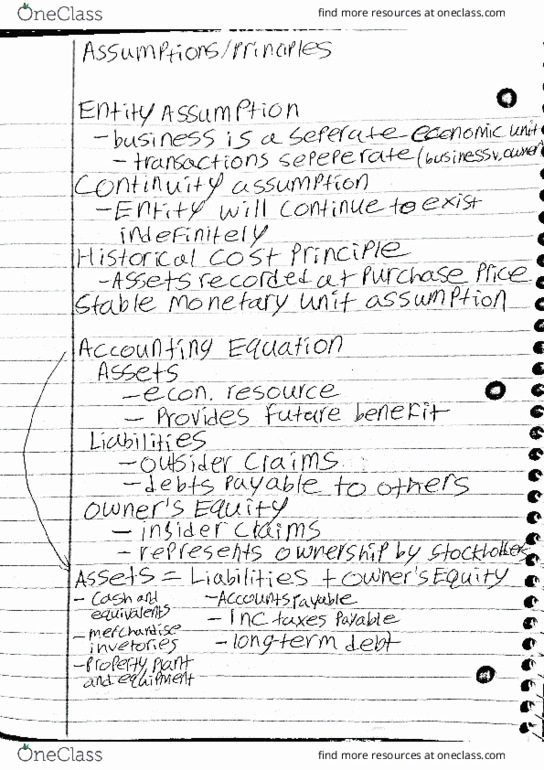 OneClass
find more resources at oneclass.com
Assumptions/Principles
Entity Assumption
- business is a seperate economic unit
- transactions sepeperate (business v. owner)
Continuity assumption
- Entity will continue to exist
indefinitely
Historical cost Principle
- Assets recorded at Purchase Price
Stable monetary unit assumption
Accounting Equation
Assets
- econ. resource
- Provides future benefit
Liabilities
- outsider claims
- debts Payable to others
Owner's Equity
- insider claims
- represents ownership by stockholders
Assets = Liabilities + Owner's Equity
- Cash and
equivalents
- merchardise
invetories
- Property, Plant
and equipment
- Accounts Payable
- Inc taxes Payable
- long-term debt
OneClass
find more resources at oneclass.com